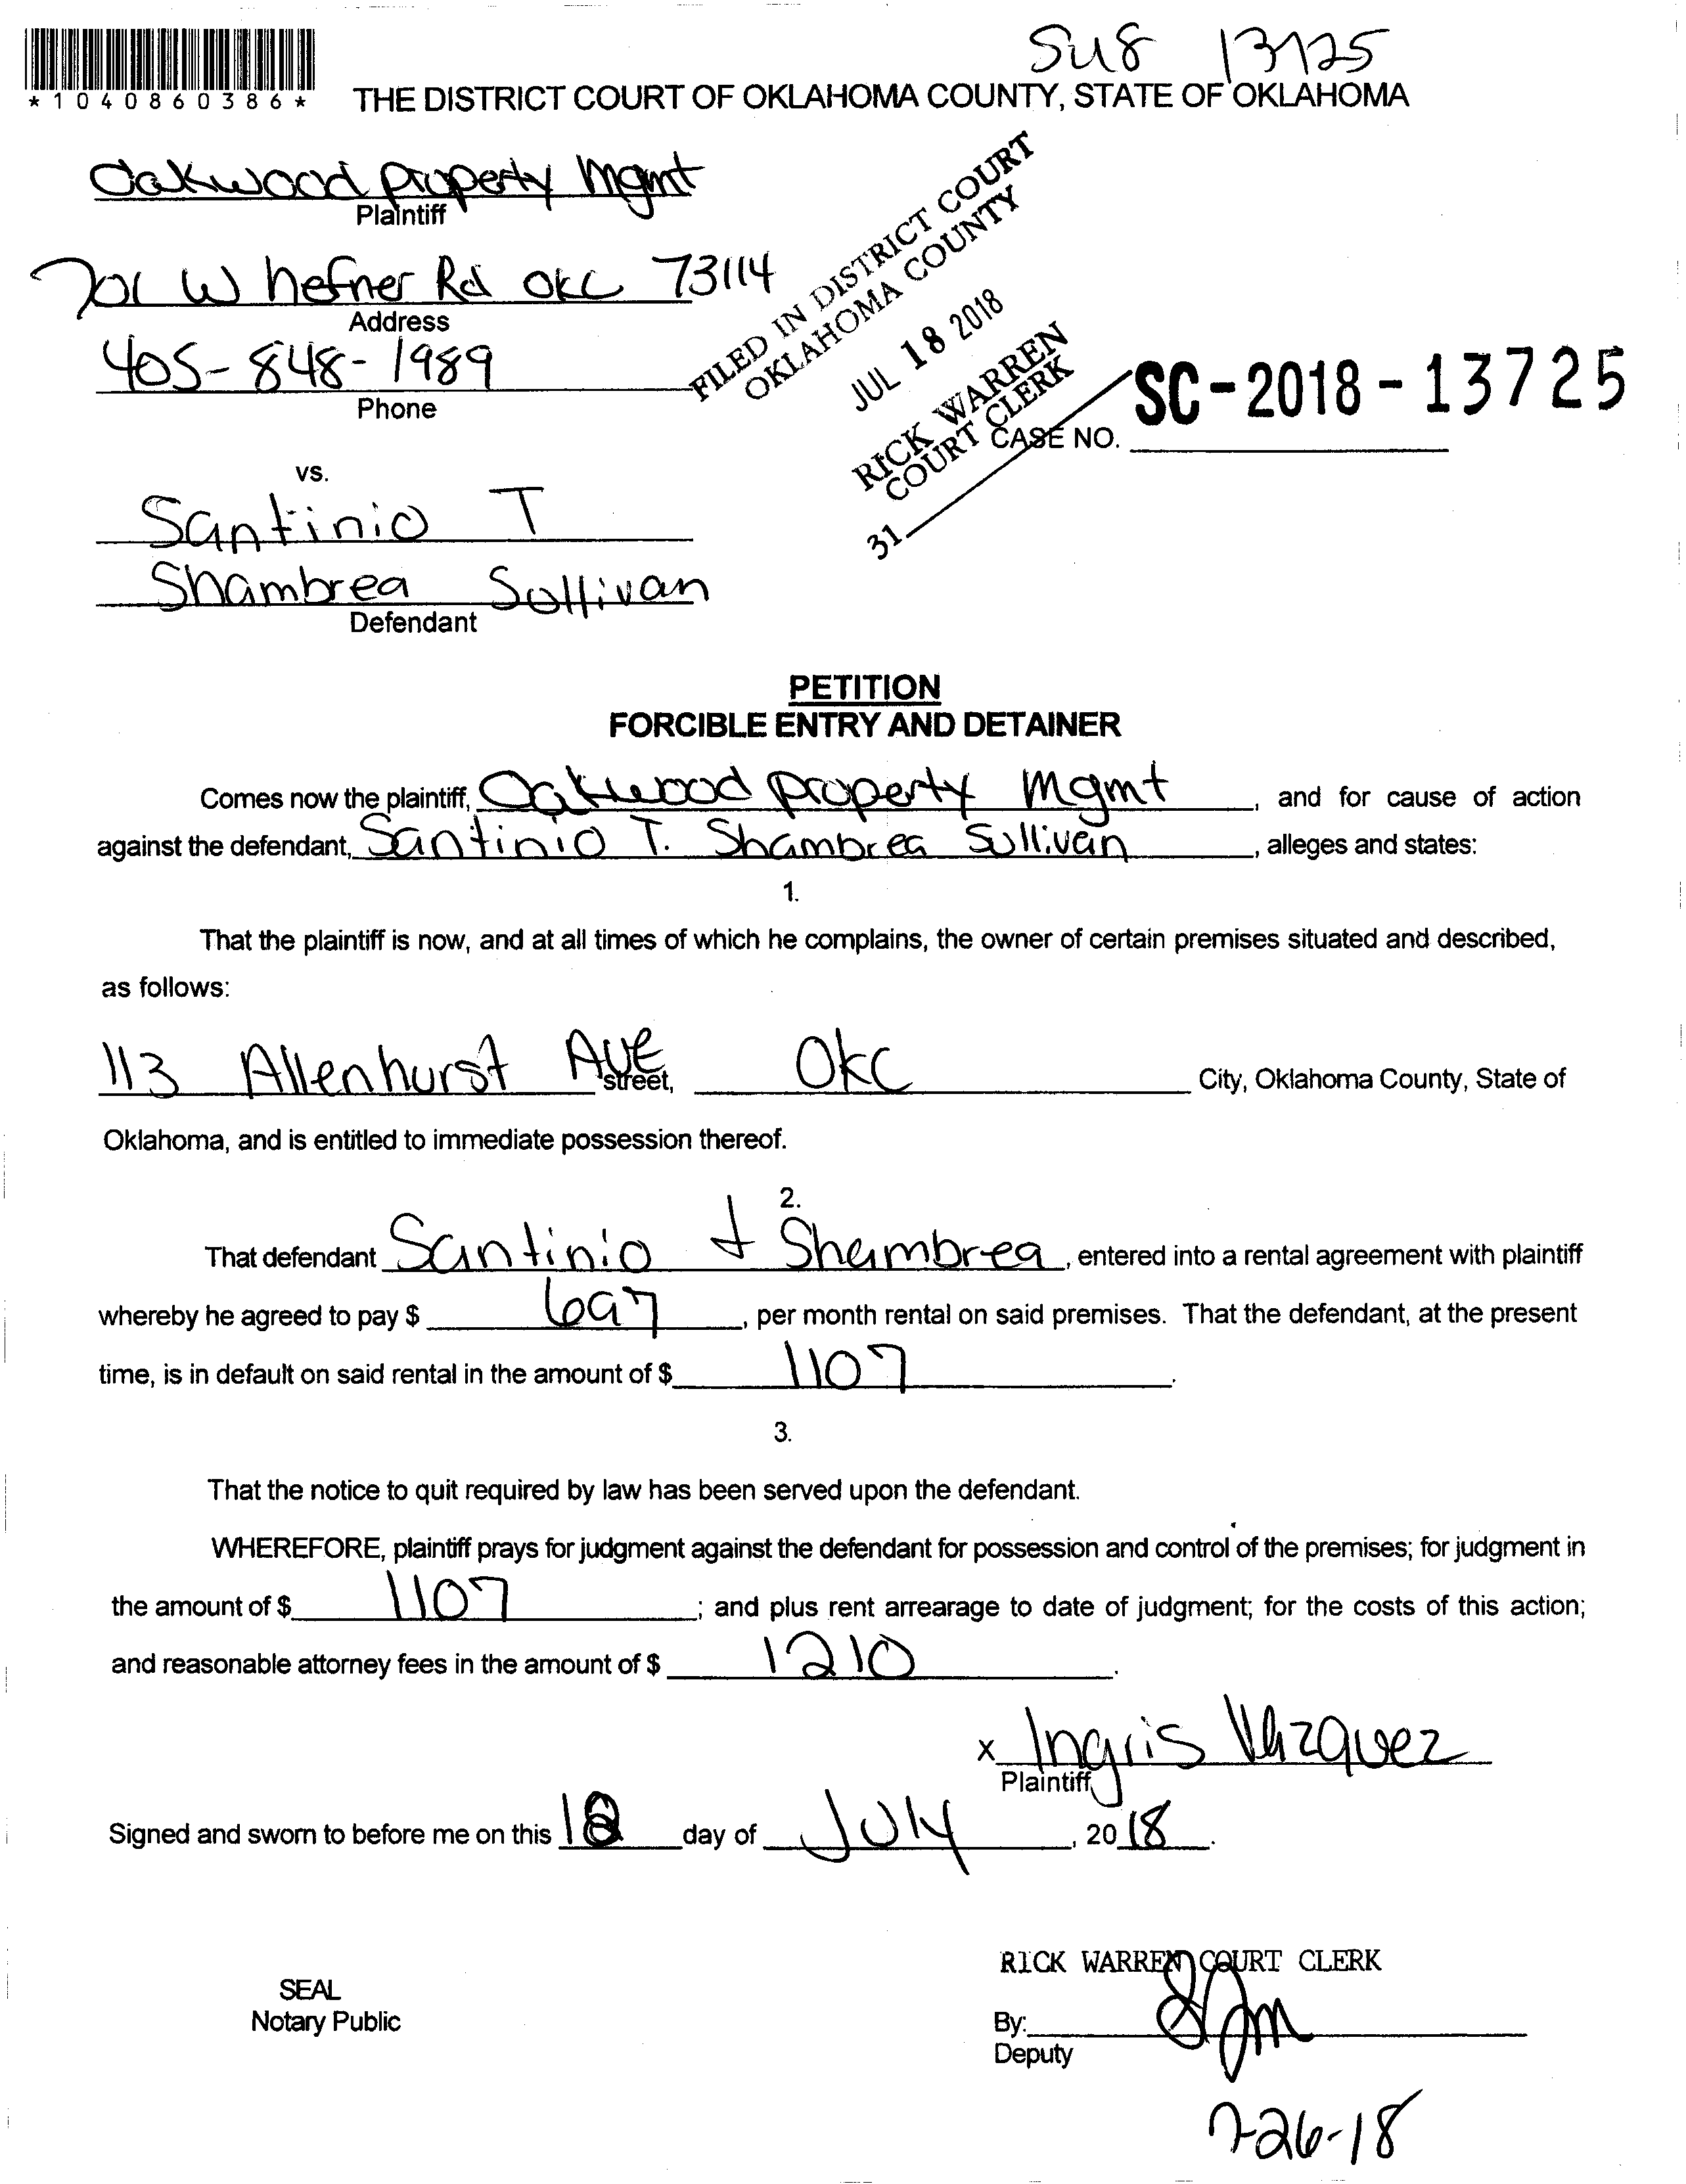 *1040860386*
THE DISTRICT COURT OF OKLAHOMA COUNTY, STATE OF OKLAHOMA
Oakwood property Mgmt
Plaintiff
701 W hefner Rd OKC 73114
Address
405-848-1989
Phone
FILED IN DISTRICT COURT
OKLAHOMA COUNTY
JUL 18 2018
RICK WARREN
COURT CLERK
31
SC-2018-13725
CASE NO.
vs.
Santinio T
Shambrea Sullivan
Defendant
PETITION
FORCIBLE ENTRY AND DETAINER
Comes now the plaintiff, Oakwood property Mgmt, and for cause of action
against the defendant, Santinio T. Shambrea Sullivan, alleges and states:
1.
That the plaintiff is now, and at all times of which he complains, the owner of certain premises situated and described,
as follows:
113 Allenhurst Ave street, OKC City, Oklahoma County, State of
Oklahoma, and is entitled to immediate possession thereof.
2.
That defendant Santinio + Shambrea, entered into a rental agreement with plaintiff
whereby he agreed to pay $ 697, per month rental on said premises. That the defendant, at the present
time, is in default on said rental in the amount of $ 1107.
3.
That the notice to quit required by law has been served upon the defendant.
WHEREFORE, plaintiff prays for judgment against the defendant for possession and control of the premises; for judgment in
the amount of $ 1107; and plus rent arrearage to date of judgment; for the costs of this action;
and reasonable attorney fees in the amount of $ 1210.
x Ingris Vazquez
Plaintiff
Signed and sworn to before me on this 18 day of July, 2018.
RICK WARREN COURT CLERK
SEAL
Notary Public
By:
Deputy
7-26-18